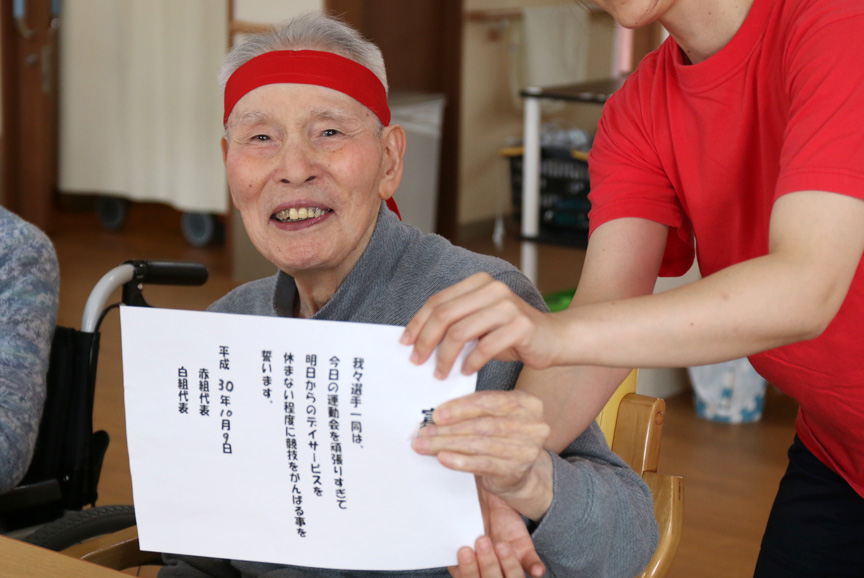 我々選手一同は、
今日の運動会を頑張りすぎて
明日からのデイサービスを
休まない程度に競技をがんばる事を
誓います。
平成 30年10月9日
赤組代表
白組代表